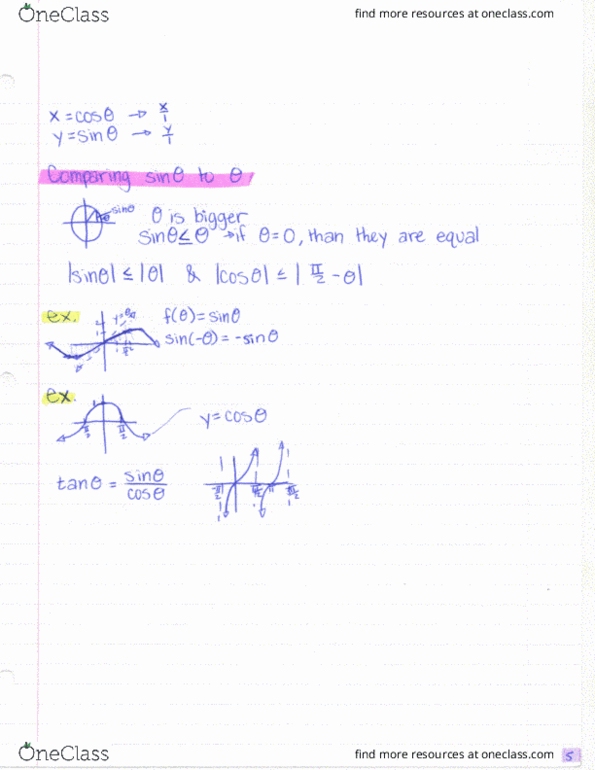 OneClass
find more resources at oneclass.com
x = cosθ → x/1
y = sinθ → y/1
Comparing sinθ to θ
sinθ
θ is bigger
sinθ ≤ θ → if θ = 0, than they are equal
|sinθ| ≤ |θ| & |cosθ| ≤ | π/2 - θ|
ex. f(θ) = sinθ
sin(-θ) = -sinθ
ex.
y = cosθ
tanθ = sinθ/cosθ
OneClass
find more resources at oneclass.com
5